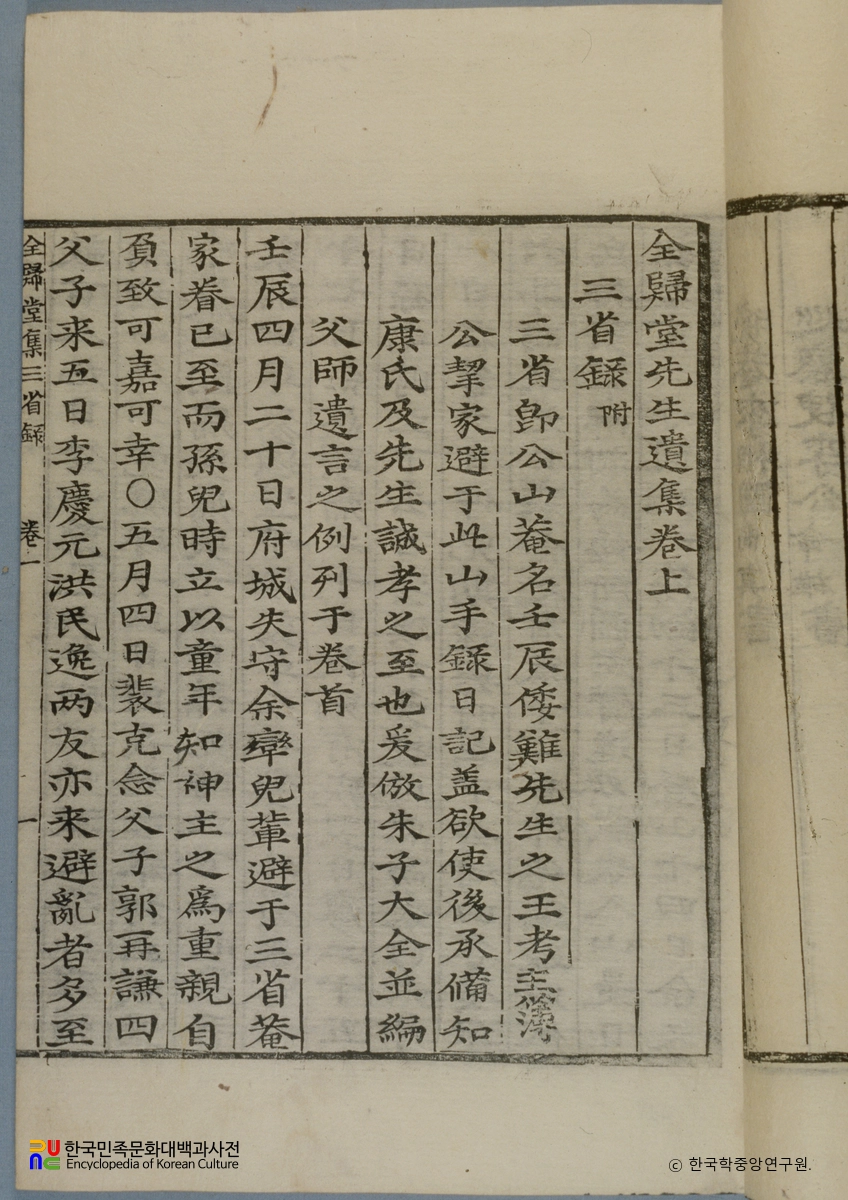 全歸堂先生遺集卷上
三省録附
三省卽公山菴名壬辰倭難先生之王考主簿
公挈家避于此山手録日記盖欲使後承備知
康氏及先生誠孝之至也爰倣朱子大全並編
父師遺言之例列于卷首
壬辰四月二十日府城失守余率兒軰避于三省菴
家眷已至而孫兒時立以童年知神主之爲重親自
負致可嘉可幸〇五月四日裴克念父子郭再謙四
父子来五日李慶元洪民逸两友亦来避亂者多至
全歸堂集三省録 卷一 一
한국민족문화대백과사전
Encyclopedia of Korean Culture
© 한국학중앙연구원.